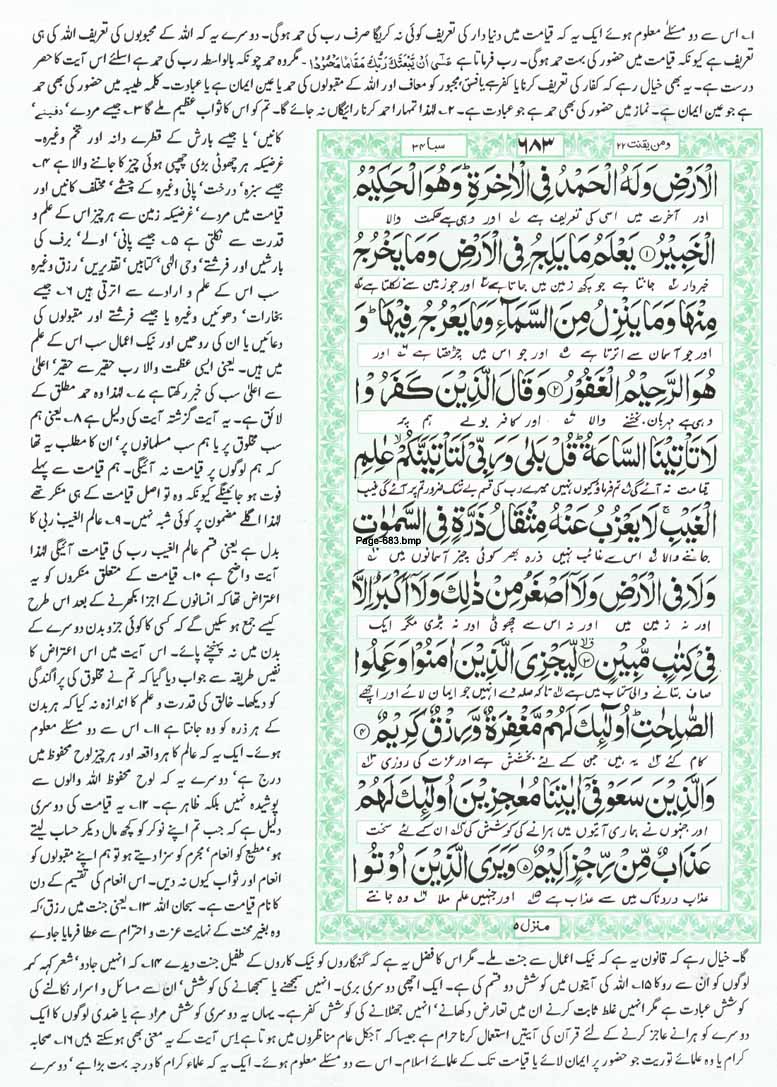 ۱۔ اس سے دو مسئلے معلوم ہوئے ایک یہ کہ قیامت میں دنیا دار کی تعریف کوئی نہ کریگا صرف رب کی حمد ہوگی۔ دوسرے یہ کہ اللہ کے محبوبوں کی تعریف اللہ کی ہی
تعریف ہے کیونکہ قیامت میں حضور کی بہت حمد ہوگی۔ رب فرماتا ہے عَسٰۤى اَنْ یَّبْعَثَكَ رَبُّكَ مَقَامًا مَّحْمُوْدًا۔ مگر وہ حمد چونکہ بالواسطہ رب کی حمد ہے اسلئے اس آیت کا حصر
درست ہے۔ یہ بھی خیال رہے کہ کفار کی تعریف کرنا یا کفر ہے یا فسق مجبور کو معاف اور اللہ کے مقبولوں کی حمد یا عین ایمان ہے یا عبادت۔ کلمہ طیبہ میں حضور کی بھی حمد
ہے جو عین ایمان ہے۔ نماز میں حضور کی بھی حمد ہے جو عبادت ہے۔ ۲۔ لہٰذا تمہارا حمد کرنا رائیگاں نہ جائے گا۔ تم کو اس کا ثواب عظیم ملے گا ۳۔ جیسے مردے' دفینے'
ومن یقنت ۲۲
۶۸۳
سبا ۳۴
الْاَرْضِ وَلَهُ الْحَمْدُ فِی الْاٰخِرَةِ ؕ وَهُوَ الْحَكِیْمُ
اور آخرت میں اسی کی تعریف ہے اور وہی ہے حکمت والا
الْخَبِیْرُ ۱ یَعْلَمُ مَا یَلِجُ فِی الْاَرْضِ وَمَا یَخْرُجُ
خبردار جانتا ہے جو کچھ زمین میں جاتا ہے اور جو زمین سے نکلتا ہے
مِنْهَا وَمَا یَنْزِلُ مِنَ السَّمَآءِ وَمَا یَعْرُجُ فِیْهَا ؕ وَ
اور جو آسمان سے اترتا ہے اور جو اس میں چڑھتا ہے اور
هُوَ الرَّحِیْمُ الْغَفُوْرُ ۲ وَقَالَ الَّذِیْنَ كَفَرُوْا
وہی ہے مہربان بخشنے والا اور کافر بولے ہم پر
لَا تَاْتِیْنَا السَّاعَةُ ؕ قُلْ بَلٰی وَرَبِّیْ لَتَاْتِیَنَّكُمْ ۙ عٰلِمِ
قیامت نہ آئے گی تم فرماؤ کیوں نہیں میرے رب کی قسم بے شک ضرور تم پر آئے گی غیب
الْغَیْبِ ۚ لَا یَعْزُبُ عَنْهُ مِثْقَالُ ذَرَّةٍ فِی السَّمٰوٰتِ
Page-683.bmp
جاننے والا اس سے غائب نہیں ذرہ بھر کوئی چیز آسمانوں میں
وَلَا فِی الْاَرْضِ وَلَاۤ اَصْغَرُ مِنْ ذٰلِكَ وَلَاۤ اَكْبَرُ اِلَّا
اور نہ زمین میں اور نہ اس سے چھوٹی اور نہ بڑی مگر ایک
فِیْ كِتٰبٍ مُّبِیْنٍ ۳ لِّیَجْزِیَ الَّذِیْنَ اٰمَنُوْا وَعَمِلُوا
صاف بتانے والی کتاب میں ہے تاکہ صلہ دے انہیں جو ایمان لائے اور اچھے
الصّٰلِحٰتِ ؕ اُولٰٓئِكَ لَهُمْ مَّغْفِرَةٌ وَّرِزْقٌ كَرِیْمٌ ۴
کام کئے یہ ہیں جن کے لئے بخشش ہے اور عزت کی روزی
وَالَّذِیْنَ سَعَوْ فِیْۤ اٰیٰتِنَا مُعٰجِزِیْنَ اُولٰٓئِكَ لَهُمْ
اور جنہوں نے ہماری آیتوں میں ہرانے کی کوشش کی ان کے لئے سخت
عَذَابٌ مِّنْ رِّجْزٍ اَلِیْمٌ ۵ وَیَرَی الَّذِیْنَ اُوْتُوا
عذاب دردناک میں سے عذاب ہے اور جنہیں علم ملا وہ جانتے
منزل ۵
کانیں' یا جیسے بارش کے قطرے دانہ اور تخم وغیرہ۔
غرضیکہ ہر چھوٹی بڑی چھپی ہوئی چیز کا جاننے والا ہے ۴۔
جیسے سبزہ' درخت' پانی وغیرہ کے چشمے' مختلف کانیں اور
قیامت میں مردے' غرضیکہ زمین سے ہر چیز اس کے علم و
قدرت سے نکلتی ہے ۵۔ جیسے پانی' اولے' برف کی
بارشیں اور فرشتے' وحی الٰہی' کتابیں' تقدیریں' رزق وغیرہ
سب اس کے علم و ارادے سے اترتی ہیں ۶۔ جیسے
بخارات' دھوئیں وغیرہ یا جیسے فرشتے اور مقبولوں کی
دعائیں یا ان کی روحیں اور نیک اعمال سب اس کے علم
میں ہیں۔ یعنی ایسی عظمت والا رب حقیر سے حقیر' اعلیٰ
سے اعلیٰ سب کی خبر رکھتا ہے ۷۔ لہٰذا وہ حمد مطلق کے
لائق ہے۔ یہ آیت گزشتہ آیت کی دلیل ہے ۸۔ یعنی ہم
سب مخلوق پر یا ہم سب مسلمانوں پر' ان کا مطلب یہ تھا
کہ ہم لوگوں پر قیامت نہ آئیگی۔ ہم قیامت سے پہلے
فوت ہو جائینگے کیونکہ وہ تو اصل قیامت کے ہی منکر تھے
لہٰذا اگلے مضمون پر کوئی شبہ نہیں۔ ۹۔ عالم الغیب' ربی کا
بدل ہے یعنی قسم عالم الغیب رب کی قیامت آئیگی لہٰذا
آیت واضح ہے ۱۰۔ قیامت کے متعلق منکروں کو یہ
اعتراض تھا کہ انسانوں کے اجزا بکھرنے کے بعد اس طرح
کیسے جمع ہو سکیں گے کہ کسی کا کوئی جزو بدن دوسرے کے
بدن میں نہ پہنچنے پائے۔ اس آیت میں اس اعتراض کا
نفیس طریقہ سے جواب دیا گیا کہ تم نے مخلوق کی پراگندگی
کو دیکھا۔ خالق کی قدرت و علم کا اندازہ نہ کیا کہ ہر بدن
کے ہر ذرہ کو وہ جانتا ہے ۱۱۔ اس سے دو مسئلے معلوم
ہوئے۔ ایک یہ کہ عالم کا ہر واقعہ اور ہر چیز لوح محفوظ میں
درج ہے' دوسرے یہ کہ لوح محفوظ اللہ والوں سے
پوشیدہ نہیں بلکہ ظاہر ہے۔ ۱۲۔ یہ قیامت کی دوسری
دلیل ہے کہ جب تم اپنے نوکر کو کچھ مال دیکر حساب لیتے
ہو' مطیع کو انعام' مجرم کو سزا دیتے ہو تو ہم اپنے مقبولوں کو
انعام اور ثواب کیوں نہ دیں۔ اس انعام کی تقسیم کے دن
کا نام قیامت ہے۔ سبحان اللہ ۱۳۔ یعنی جنت میں رزق' کہ
وہ بغیر محنت کے نہایت عزت و احترام سے عطا فرمایا جاوے
گا۔ خیال رہے کہ قانون یہ ہے کہ نیک اعمال سے جنت ملے۔ مگر اس کا فضل یہ ہے کہ گنہگاروں کو نیک کاروں کے طفیل جنت دیدے ۱۴۔ کہ انہیں جادو' شعر کہہ کر
لوگوں کو ان سے روکا ۱۵۔ اللہ کی آیتوں میں کوشش دو قسم کی ہے۔ ایک اچھی دوسری بری۔ انہیں سمجھنے یا سمجھانے کی کوشش' ان سے مسائل و اسرار نکالنے کی
کوشش عبادت ہے مگر انہیں غلط ثابت کرنے ان میں تعارض دکھانے' انہیں جھٹلانے کی کوشش کفر ہے۔ یہاں یہ دوسری کوشش مراد ہے یا ضدی لوگوں کا ایک
دوسرے کو ہرانے عاجز کرنے کے لئے قرآن کی آیتیں استعمال کرنا حرام ہے جیسا کہ آجکل عام مناظروں میں ہوتا ہے اس آیت کے یہ معنی بھی ہو سکتے ہیں ۱۶۔ صحابہ
کرام یا وہ علمائے توریت جو حضور پر ایمان لائے یا قیامت تک کے علمائے اسلام۔ اس سے دو مسئلے معلوم ہوئے۔ ایک یہ کہ علماء کرام کا درجہ بہت بڑا ہے' دوسرے